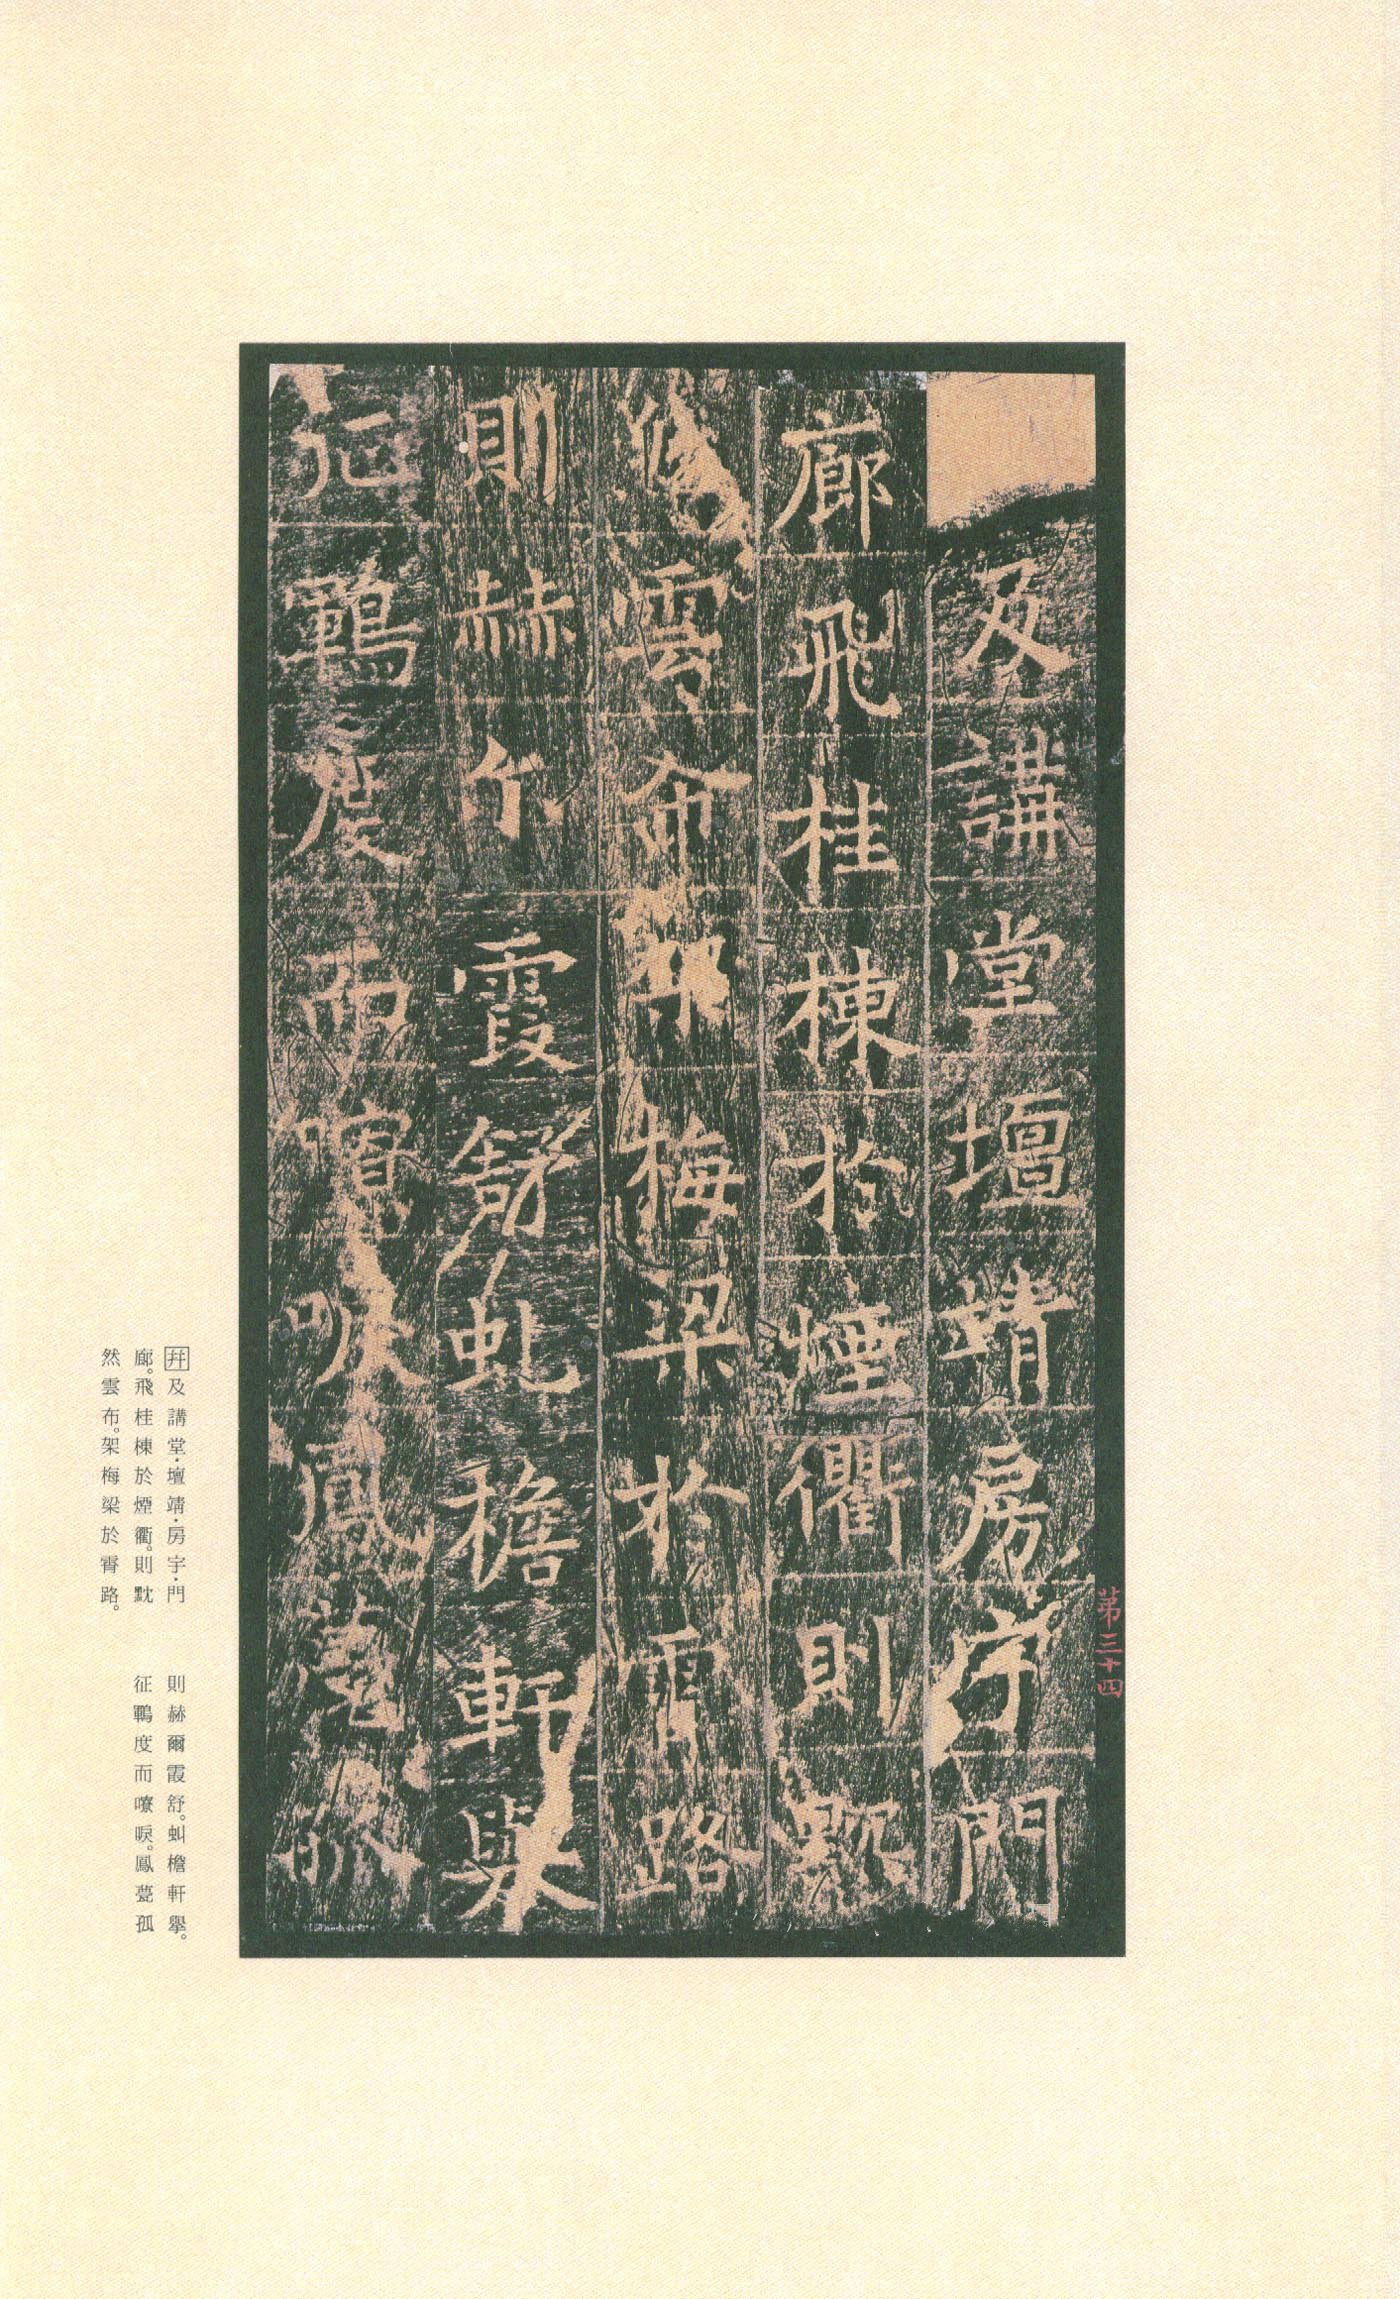 及講堂壇靖房宇門
廊飛桂棟於煙衢則黕
然雲布架梅梁於霄路
則赫尒霞舒虬檐軒舉
征鶤度而嘹唳鳳甍孤
第三十四
幷及講堂·壇靖·房宇·門
廊。飛桂棟於煙衢。則黕
然雲布。架梅梁於霄路。
則赫爾霞舒。虬檐軒舉。
征鶤度而嘹唳。鳳甍孤